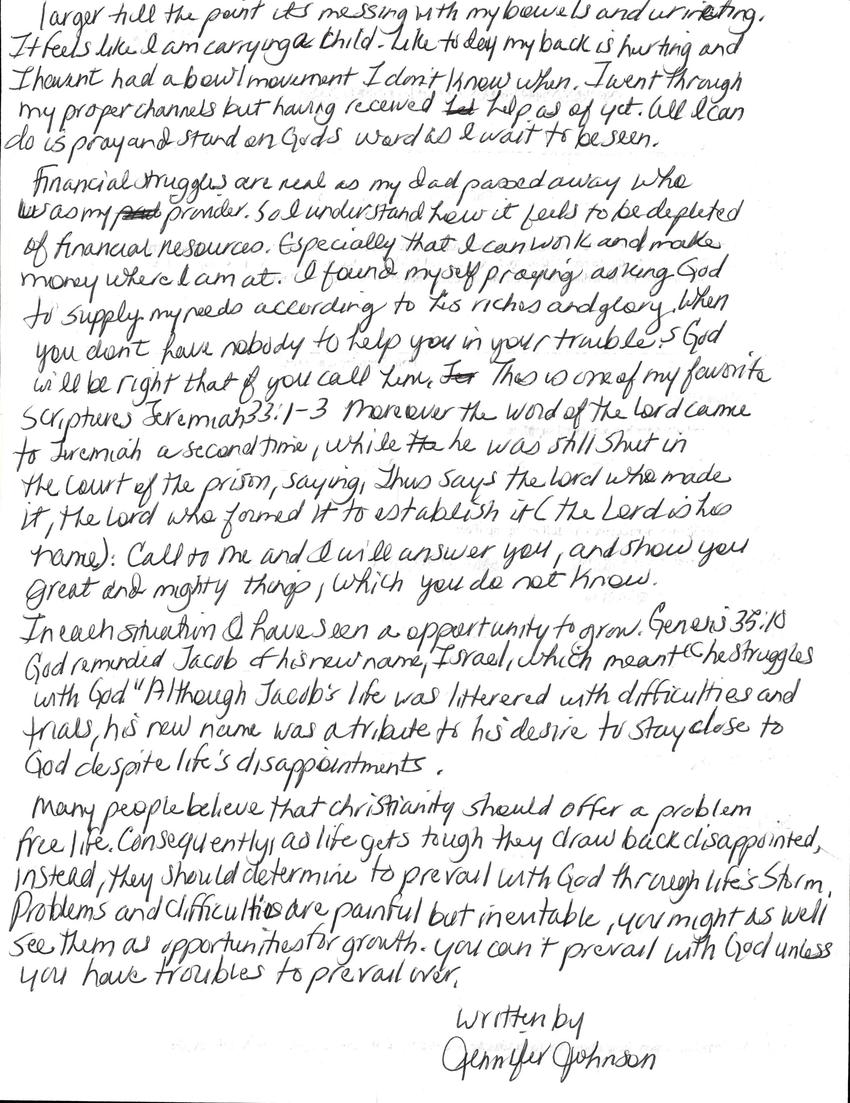 larger till the point its messing with my bowels and urinating.
It feels like I am carrying a child. Like today my back is hurting and
I havent had a bowl movement I don't know when. I went through
my proper channels but having received help as of yet. All I can
do is pray and stand on Gods word as I wait to be seen.
Financial struggles are real as my dad passed away who
was my provider. So I understand how it feels to be depleted
of financial resources. Especially that I can work and make
money where I am at. I found myself praying asking God
to supply my needs according to his riches and glory. When
you don't have nobody to help you in your trouble.s God
will be right that if you call him. This is one of my favorite
Scriptures Jeremiah 33:1-3 Moreover the word of the lord came
to Jeremiah a second time, while he was still shut in
the court of the prison, saying, Thus says the Lord who made
it, the Lord who formed it to establish it (the Lord is his
name): Call to me and I will answer you, and show you
great and mighty things, which you do not know.
In each situation I have seen a opportunity to grow. Genesis 35:10
God reminded Jacob of his new name, Israel, which meant "he struggles
with God" Although Jacob's life was litterered with difficulties and
trials, his new name was a tribute to his desire to stay close to
God despite life's disappointments.
Many people believe that christianity should offer a problem
free life. Consequently, as life gets tough they draw back disappointed,
instead, they should determine to prevail with God through life's Storm.
Problems and difficulties are painful but inevitable, you might as well
see them as opportunities for growth. you can't prevail with God unless
you have troubles to prevail over.
written by
Jennifer Johnson